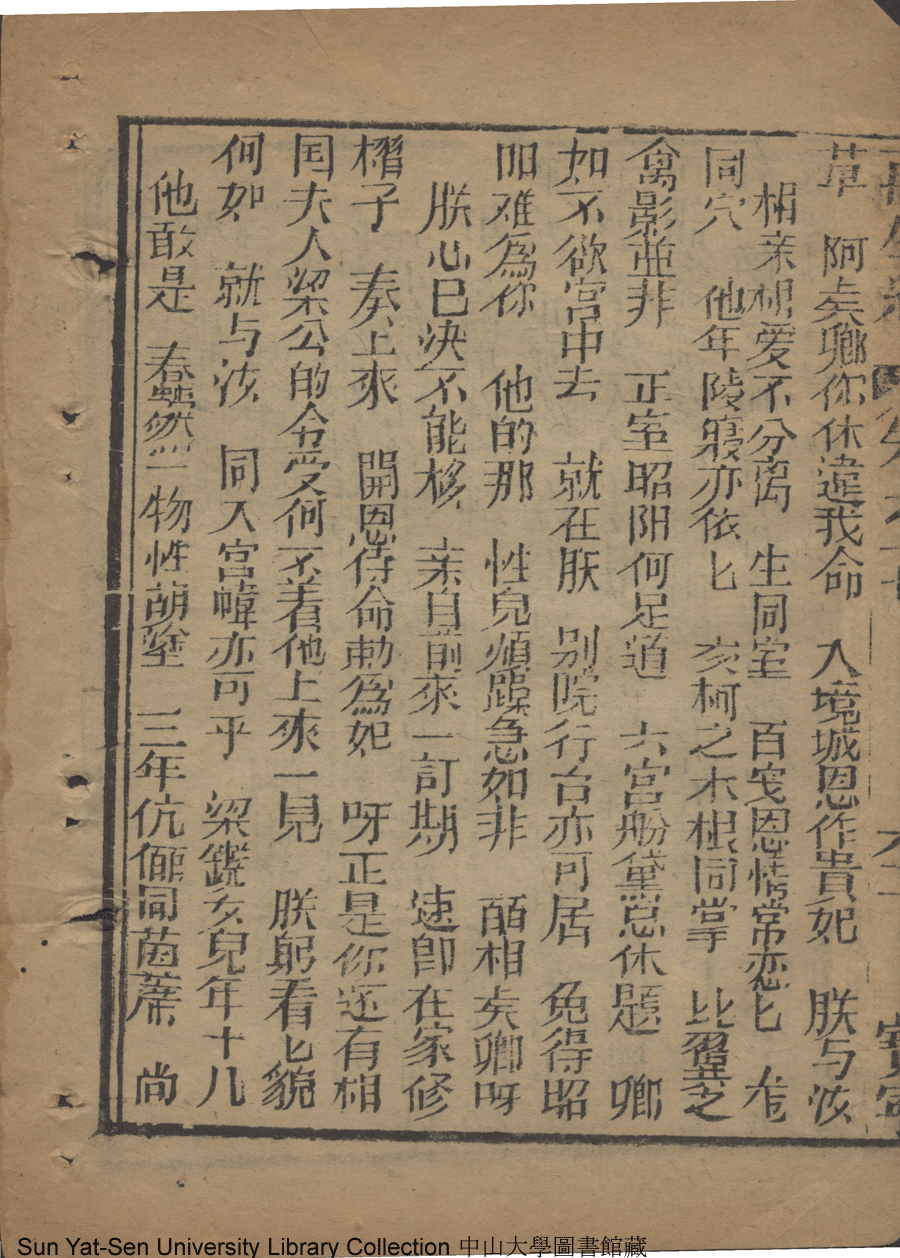 再生緣
草　阿矣卿你休違我命　入境城恩作貴妃　朕与汝
相亲相爱不分离　生同室　百岁恩情常恋匕　
同穴　他年陵寢亦依匕　亥柯之木根同掌　比翼之
禽影並非　正室昭阳何足道　六宮粉黛总休題　卿
如不欲宮中去　就在朕　别院行台亦可居　免得昭
阳难為你　他的那　性兒煩躁急如非　酩相矣卿呀
朕心巳决不能移　亲自前來一訂期　速卽在家修
槢子　奏上來　開恩待命勅為妃　呀正是你还有相
国夫人梁公的令爱何不着他上來一見　朕躬看匕貌
何如　就与汝　同入宮幃亦可乎　梁鏡亥兒年十八
他敢是　春蠶然一物性葫塗　三年伉儷同茵蓆　尚